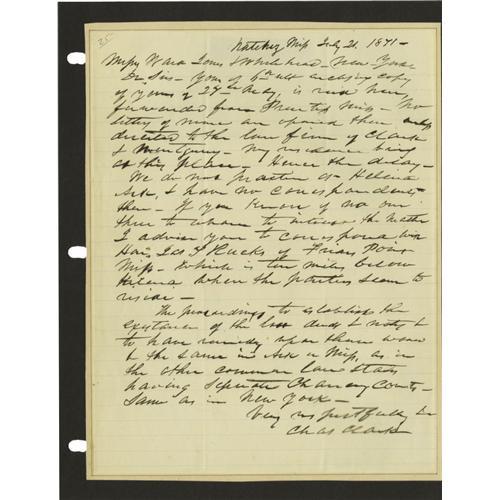 35
Natchez Miss July 21. 1871 -
Messrs Ward Jones & Whitehead - New York
Dr Sirs - Yours of 6th ult enclosing copy
of yours of 27th is rec'd here
forwarded from Miss - No
letters of mine are opened there
directed to the law firm of Clark
& Montgomery - My residence being
at this place - Hence the delay -
We do not practice at Helena
Ark, & have no correspondents
there - If you know of no one
there to whom to intrust the matter
I advise you to correspond with
Hon. Jas T Rucks of Friars Point
Miss - Which is ten miles below
Helena where the parties seem to
reside -
The proceedings to establish the
existence of the lost deed & notes, &
to have remedy upon them would
be the same in Ark or Miss, as in
the other common law States
having separate Chancery Courts -
Same as in New York -
Very respectfully
Chas Clark